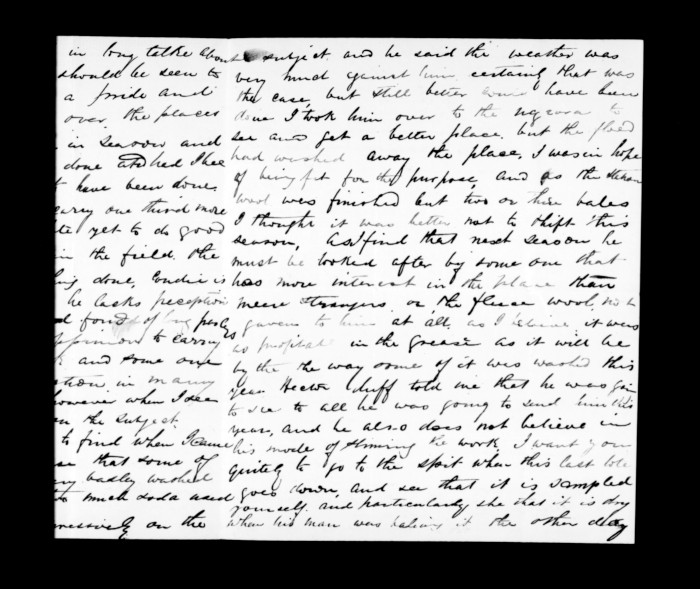 in long talke about
should be seen to
a pride and
over the places
in season and
done and had I been
t have been done
carry one third more
te yet to do good
in the field. the
ing done, Condie is
he lacks perception
d fond of
opinion to carry
and some one
ation, in many
however when I see
on the subject.
to find when I came
se that some of
ery badley washed
to much soda used
pressively on the
subject. and he said the weather was
very much against him, certainly that was
the case, but still better have been
done I took him over to the ngaroro to
see and get a better place, but the flood
had washed away the place, I was in hope
of being fit for the purpose, and as the
wool was finished but two or three bales
I thought it was better not to shift this
season, As I find that next season he
must be looked after by some one that
has more interest in the place than
meere strangers, or, the fleece wool,
to him at all, as I believe it was
as in the grease as it will be
by the the way some of it was washed this
year Hector duff told me that he was
to to all he was going to send him this
year, and he also does not believe in
his mode of the work I want you
quitely to go to the spit when this last lote
goes down, and see that it is sampled
yourself, and particularly she that it is dry
when his man was baleing it the other day